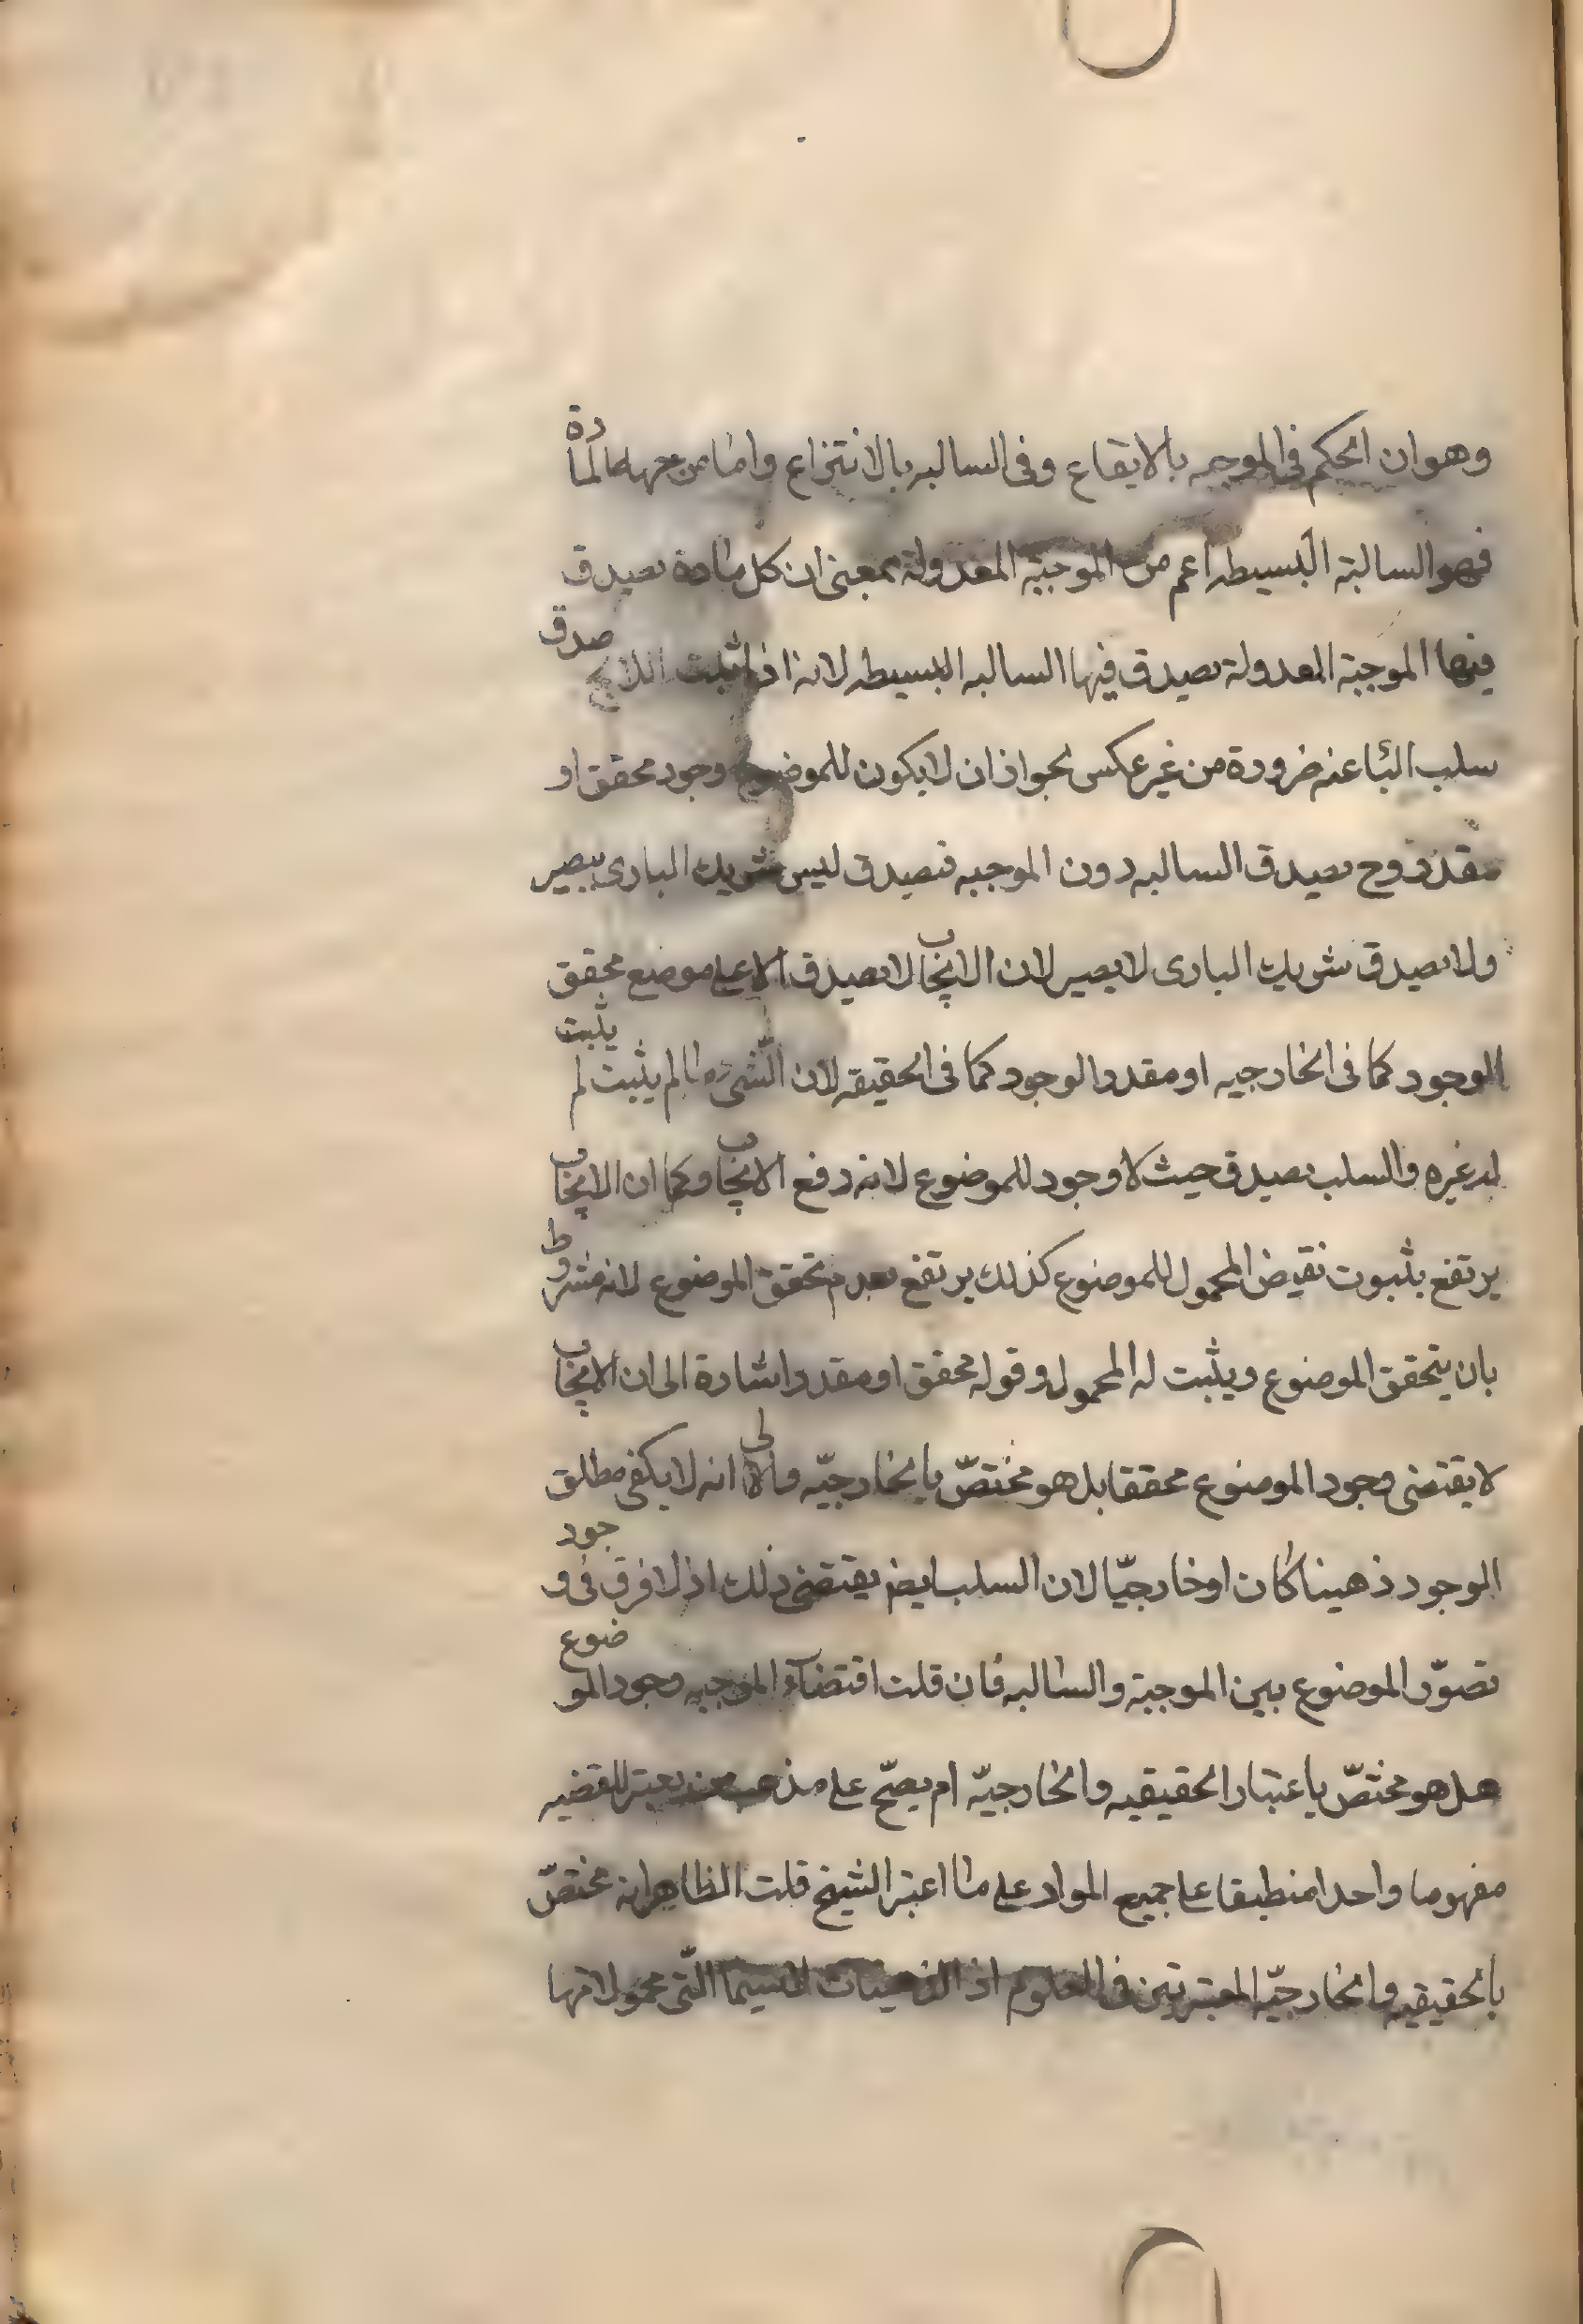 وهو ان الحكم فى الموجبه بالايقاع وفى السالبه بالانتزاع واما من جهة المادة
فهو السالبة البسيطه اعم من الموجبة المعدولة بمعنى ان كل مادة يصدق
فيها الموجبة المعدولة يصدق فيها السالبه البسيطه لانه اذا ثبت اللاب صدق
سلب البا عنه ضرورة من غير عكس لجواز ان لا يكون للموضوع وجود محقق او
مقدر وح يصدق السالبه دون الموجبه فيصدق ليس شريك البارى ببصير
ولا يصدق شريك البارى لا بصير لان الايجاب لا يصدق الا على موضع محقق
الوجود كما فى الخارجيه او مقدر الوجود كما فى الحقيقه لان الشىء ما لم يثبت لم يثبت
له غيره والسلب يصدق حيث لا وجود للموضوع لانه رفع الايجاب وكما ان الايجاب
يرتفع بثبوت نقيض المحمول للموضوع كذلك يرتفع بعدم تحقق الموضوع لانه مشروط
بان يتحقق الموضوع ويثبت له المحمول وقوله محقق او مقدر اشارة الى ان الايجاب
لا يقتضى وجود الموضوع محققا بل هو مختصّ بالخارجيّه والى انه لا يكفى مطلق
الوجود ذهينا كان او خارجيّا لان السلب ايض يقتضى ذلك اذ لا فرق فى وجود
تصوّر الموضوع بين الموجبة والسالبه فان قلت اقتضاء الموجبه وجود الموضوع
هل هو مختصّ باعتبار الحقيقيه والخارجيّه ام يصحّ على مذهب من يعتبر للقضيه
مفهوما واحدا منطبقا على جميع المواد على ما اعتبر الشيخ قلت الظاهر انه مختصّ
بالحقيقيه والخارجيّه المعتبرتين فى العلوم اذ الذهينات لاسيما التّى محمولاتها